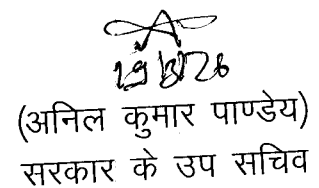 (अनिल कुमार पाण्डेय)
सरकार के उप सचिव